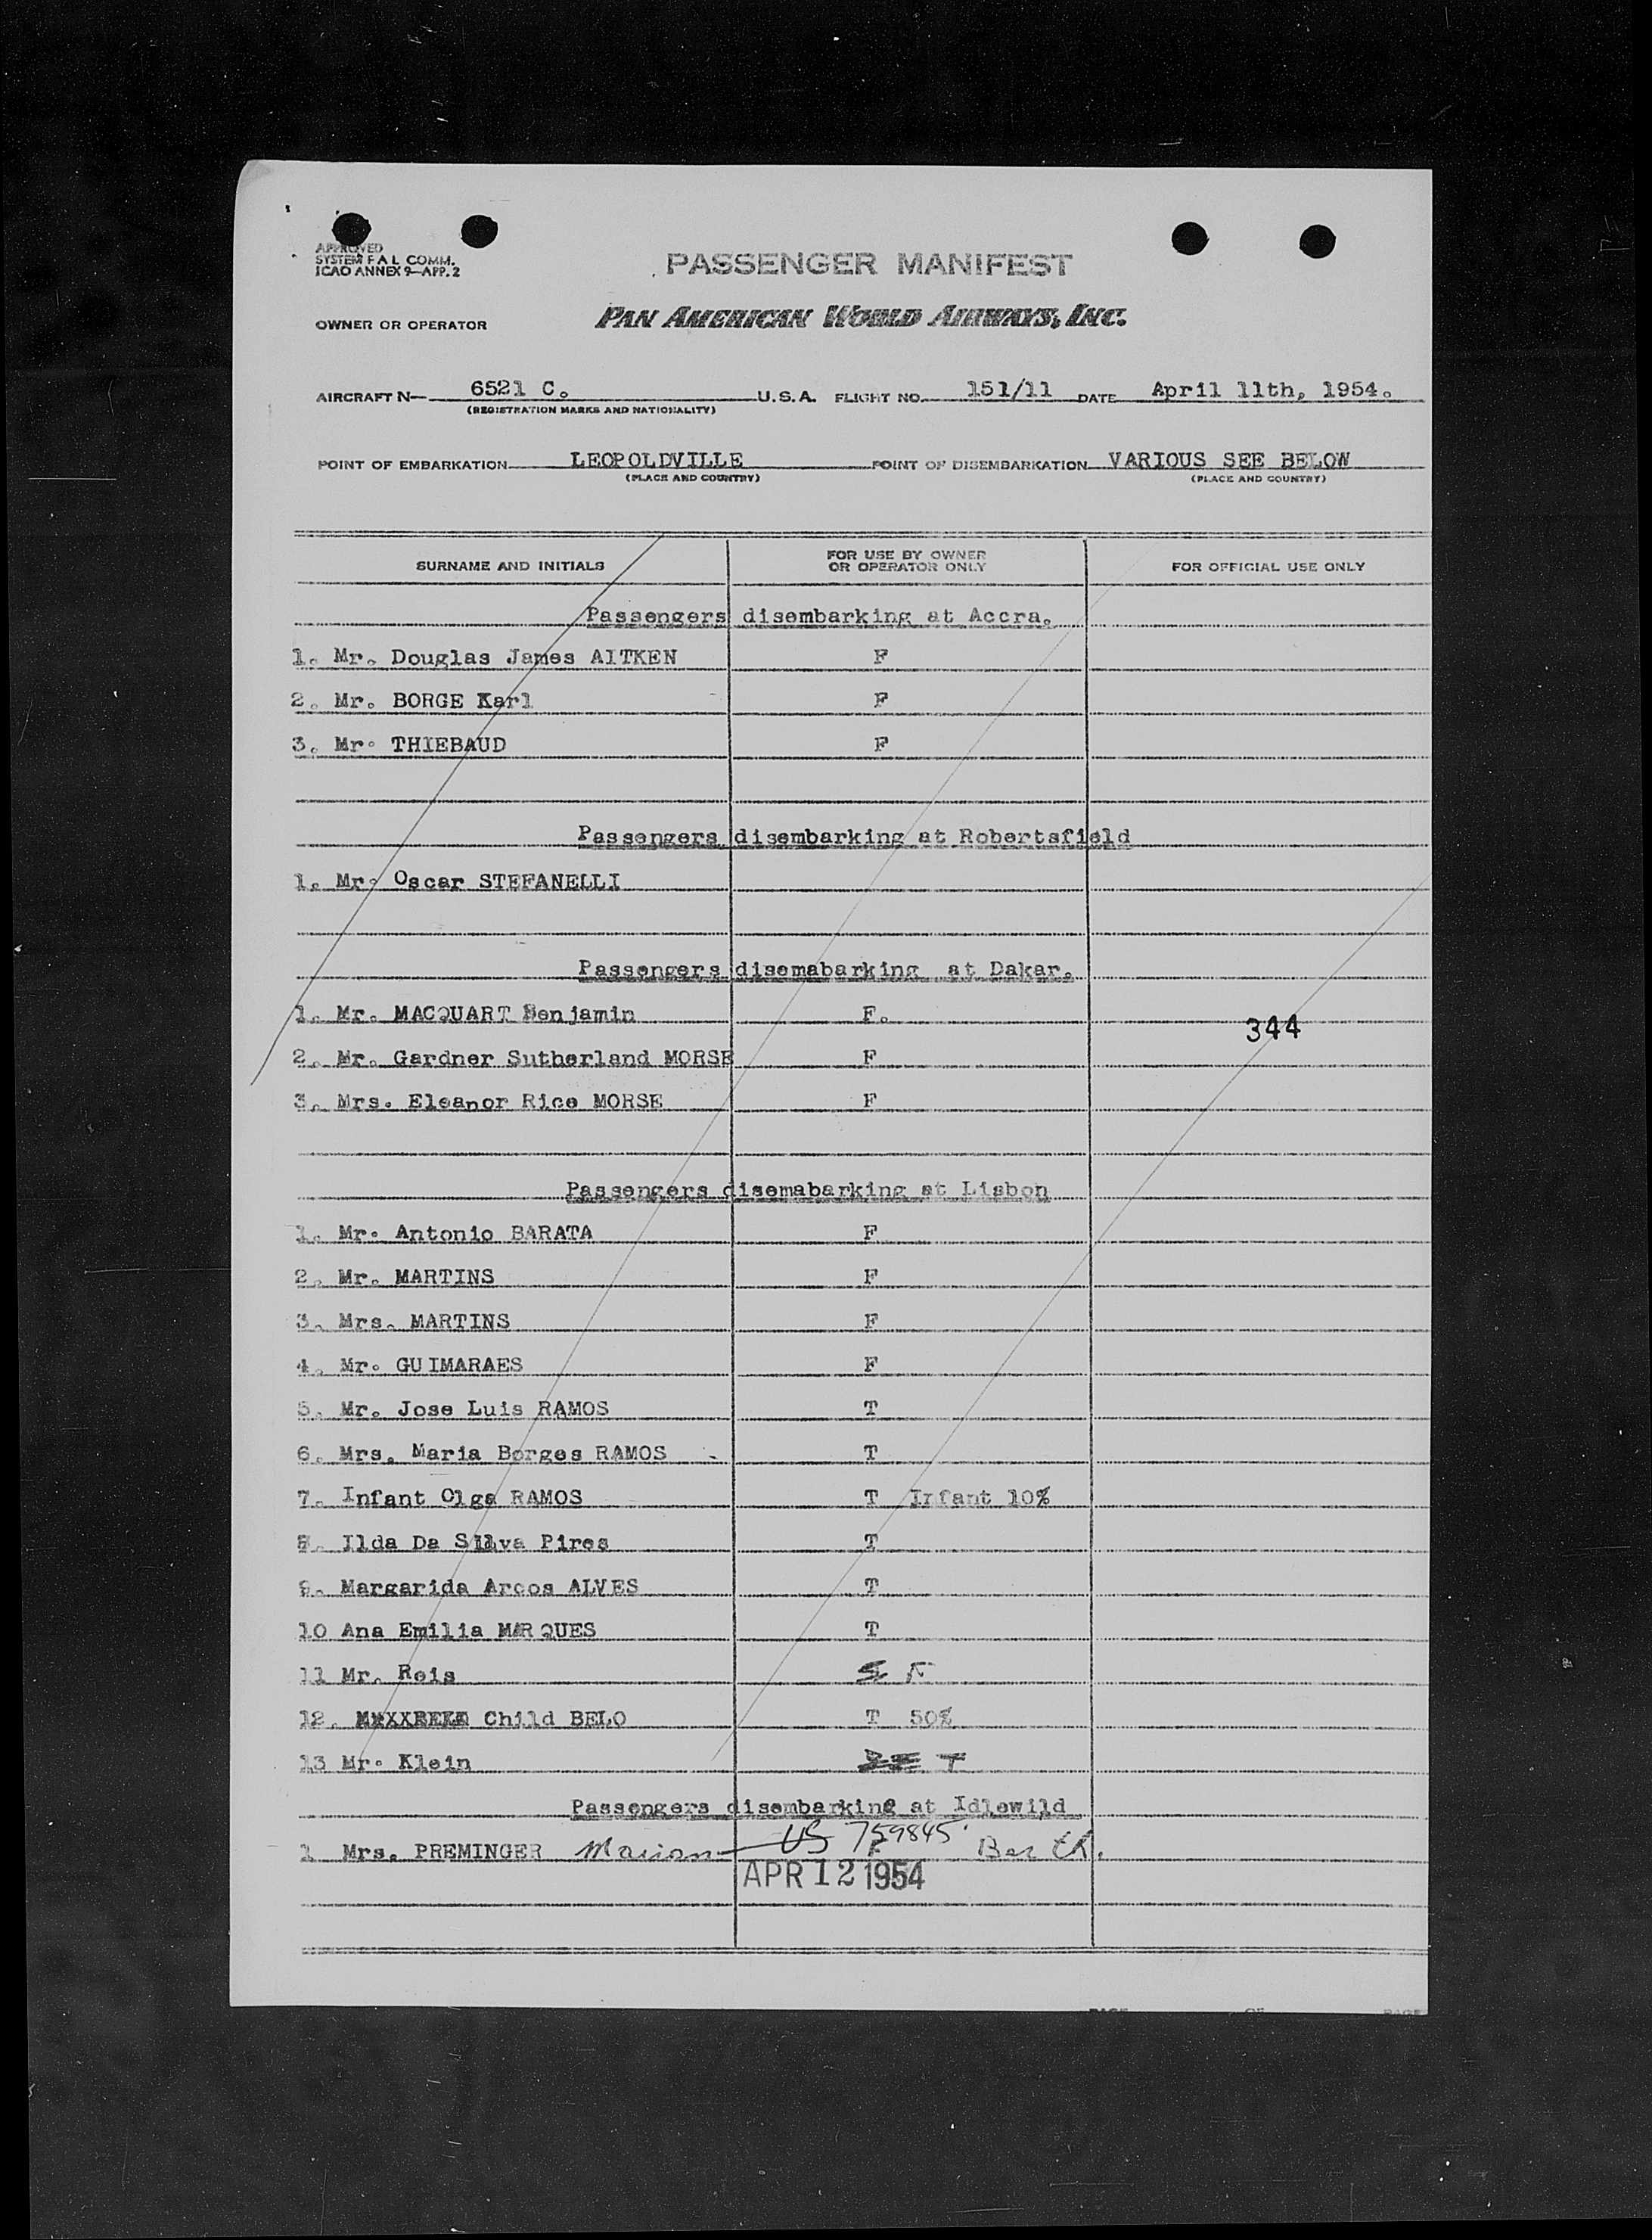 APPROVED
SYSTEM F A L COMM.
ICAO ANNEX 9—APP. 2
PASSENGER MANIFEST
OWNER OR OPERATOR PAN AMERICAN WORLD AIRWAYS, INC.
AIRCRAFT N— 6521 C. U.S.A. FLIGHT NO. 151/11 DATE April 11th, 1954.
(REGISTRATION MARKS AND NATIONALITY)
POINT OF EMBARKATION LEOPOLDVILLE POINT OF DISEMBARKATION VARIOUS SEE BELOW
(PLACE AND COUNTRY) (PLACE AND COUNTRY)
SURNAME AND INITIALS FOR USE BY OWNER OR OPERATOR ONLY FOR OFFICIAL USE ONLY
Passengers disembarking at Accra.
1. Mr. Douglas James AITKEN F
2. Mr. BORGE Karl F
3. Mr. THIEBAUD F
Passengers disembarking at Robertsfield
1. Mr. Oscar STEFANELLI
Passengers disemabarking at Dakar.
1. Mr. MACQUART Benjamin F.
344
2. Mr. Gardner Sutherland MORSE F
3. Mrs. Eleanor Rice MORSE F
Passengers disemabarking at Lisbon
1. Mr. Antonio BARATA F
2. Mr. MARTINS F
3. Mrs. MARTINS F
4. Mr. GUIMARAES F
5. Mr. Jose Luis RAMOS T
6. Mrs. Maria Borges RAMOS T
7. Infant Olga RAMOS T Infant 10%
Ilda Da Silva Pires T
9. Margarida Arcos ALVES T
10 Ana Emilia MARQUES T
11 Mr. Reis F
12. Child BELO T 50%
13 Mr. Klein T
Passengers disembarking at Idlewild
1 Mrs. PREMINGER Marion US 759845
APR 12 1954